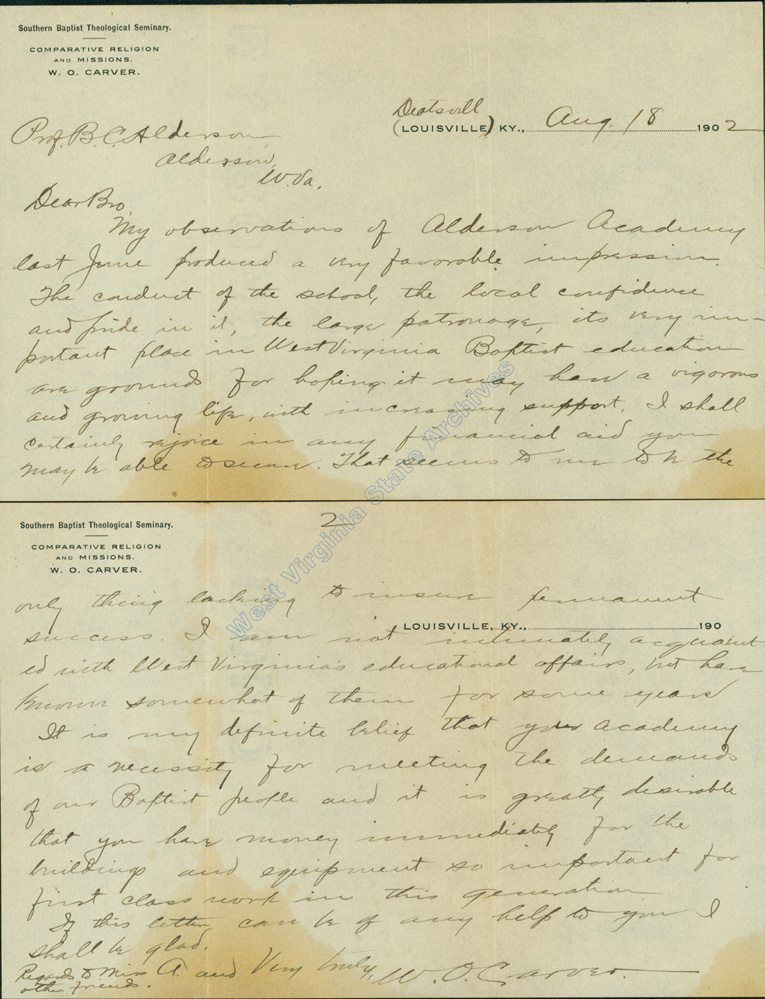 Southern Baptist Theological Seminary.
COMPARATIVE RELIGION
AND MISSIONS.
W. O. CARVER.
Deatsvill
(LOUISVILLE) KY., Aug. 18 1902
Prof. B. C. Alderson,
Alderson,
W. Va.
Dear Bro.
My observations of Alderson Academy
last June produced a very favorable impression.
The conduct of the school, the local confidence
and pride in it, the large patronage, its very im-
portant place in West Virginia Baptist education
are grounds for hoping it may have a vigorous
and growing life, with increasing support. I shall
certainly rejoice in any financial aid you
may be able to secure. That seems to me to be the
Southern Baptist Theological Seminary.
2
COMPARATIVE RELIGION
AND MISSIONS.
W. O. CARVER.
only thing lacking to insure permanent
LOUISVILLE, KY., 190
success I am not intimately acquaint
ed with West Virginia's educational affairs, but have
known somewhat of them for some years
It is my definite belief that your academy
is a necessity for meeting the demands
of our Baptist people and it is greatly desirable
that you have money immediately for the
buildings and equipment so important for
first class work in this generation
If this letter can be of any help to you I
shall be glad.
Very truly, W. O. Carver.
Regards to Miss A. and
other friends.
West Virginia State Archives